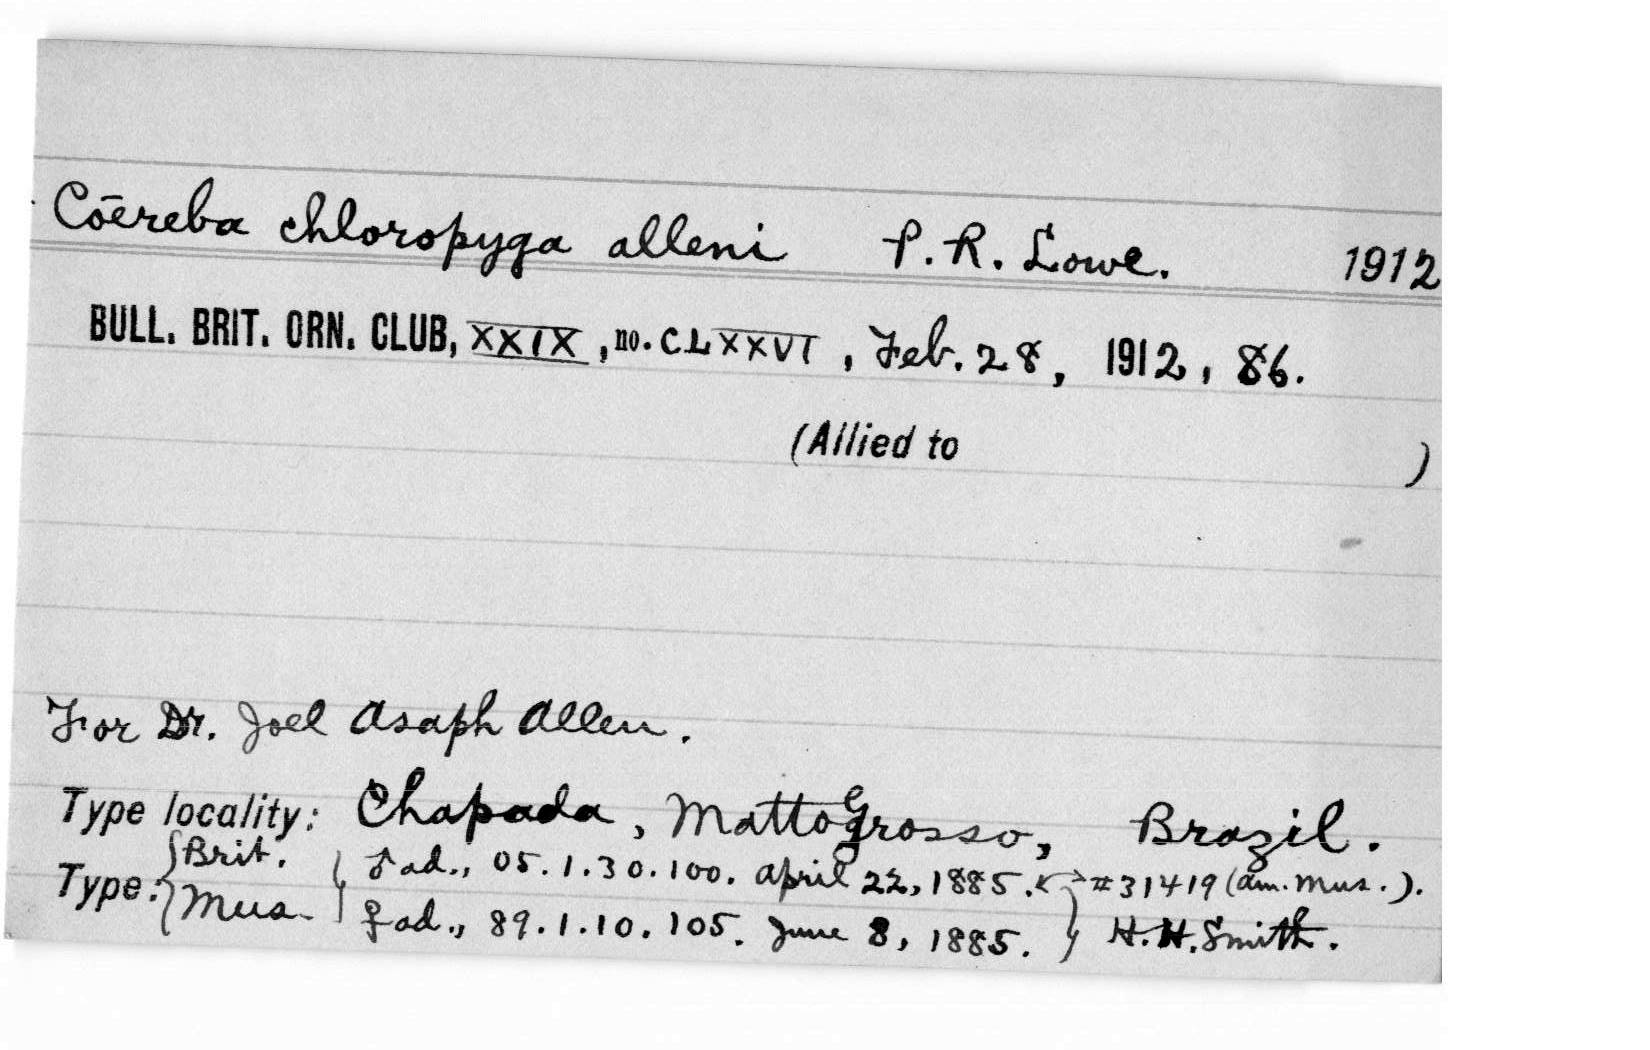 Cōereba chloropyga alleni P. R. Lowe. 1912
BULL. BRIT. ORN. CLUB, XXIX, no. CLXXVI, Feb. 28, 1912, 86.
(Allied to )
For Dr. Joel Asaph Allen.
Type locality: Chapada, Matto Grosso, Brazil.
Type: { Brit. Mus. } ♂ ad., 05.1.30.100. April 22, 1885. ↔ #31419 (Am. Mus.).
♀ ad., 89.1.10.105. June 8, 1885. } H. H. Smith.